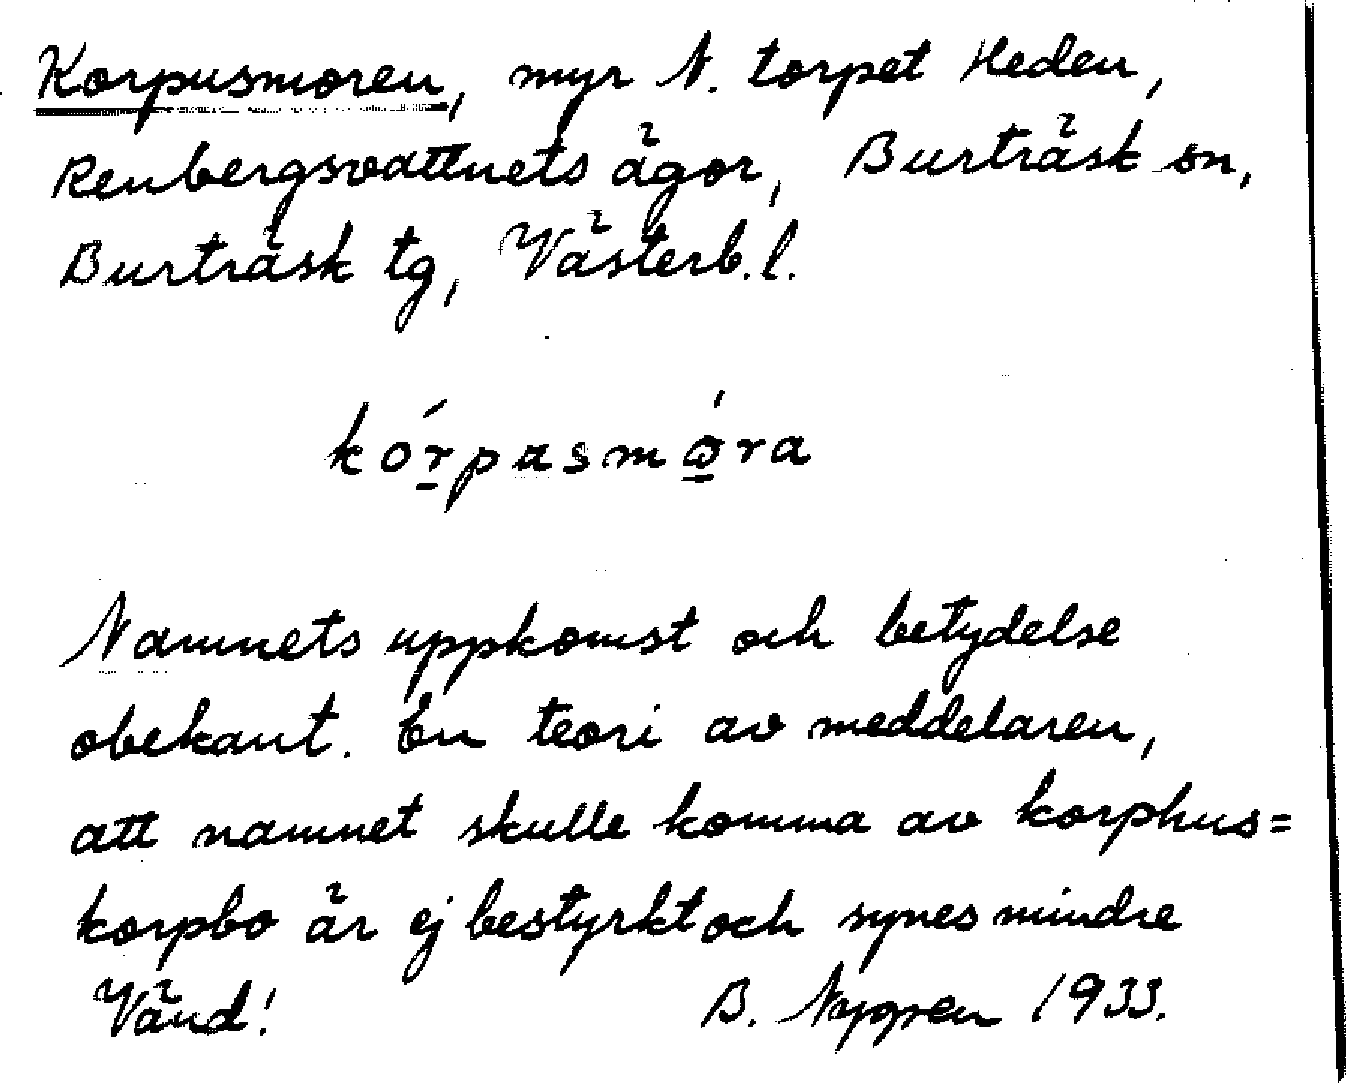 Korpusmoren, myr N. torpet Heden,
Renbergsvattnets ägor, Burträsk sn,
Burträsk tg, Västerb.l.
kórpasmǫ́ra
Namnets uppkomst och betydelse
obekant. En teori av meddelaren,
att namnet skulle komma av korphus=
korpbo är ej bestyrkt och synes mindre
Vänd! B. Nygren 1933.